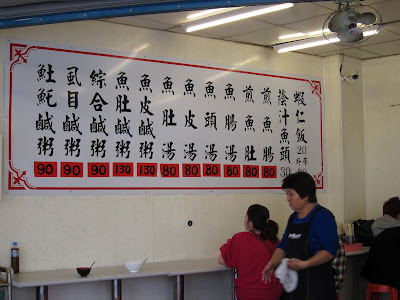 𩵚魠鹹粥 90
虱目鹹粥 90
綜合鹹粥 90
魚肚鹹粥 130
魚皮鹹粥 130
魚肚湯 80
魚皮湯 80
魚頭湯 80
魚腸湯 80
煎魚肚 80
煎魚腸 80
蔭汁魚頭 30
蝦仁飯 20